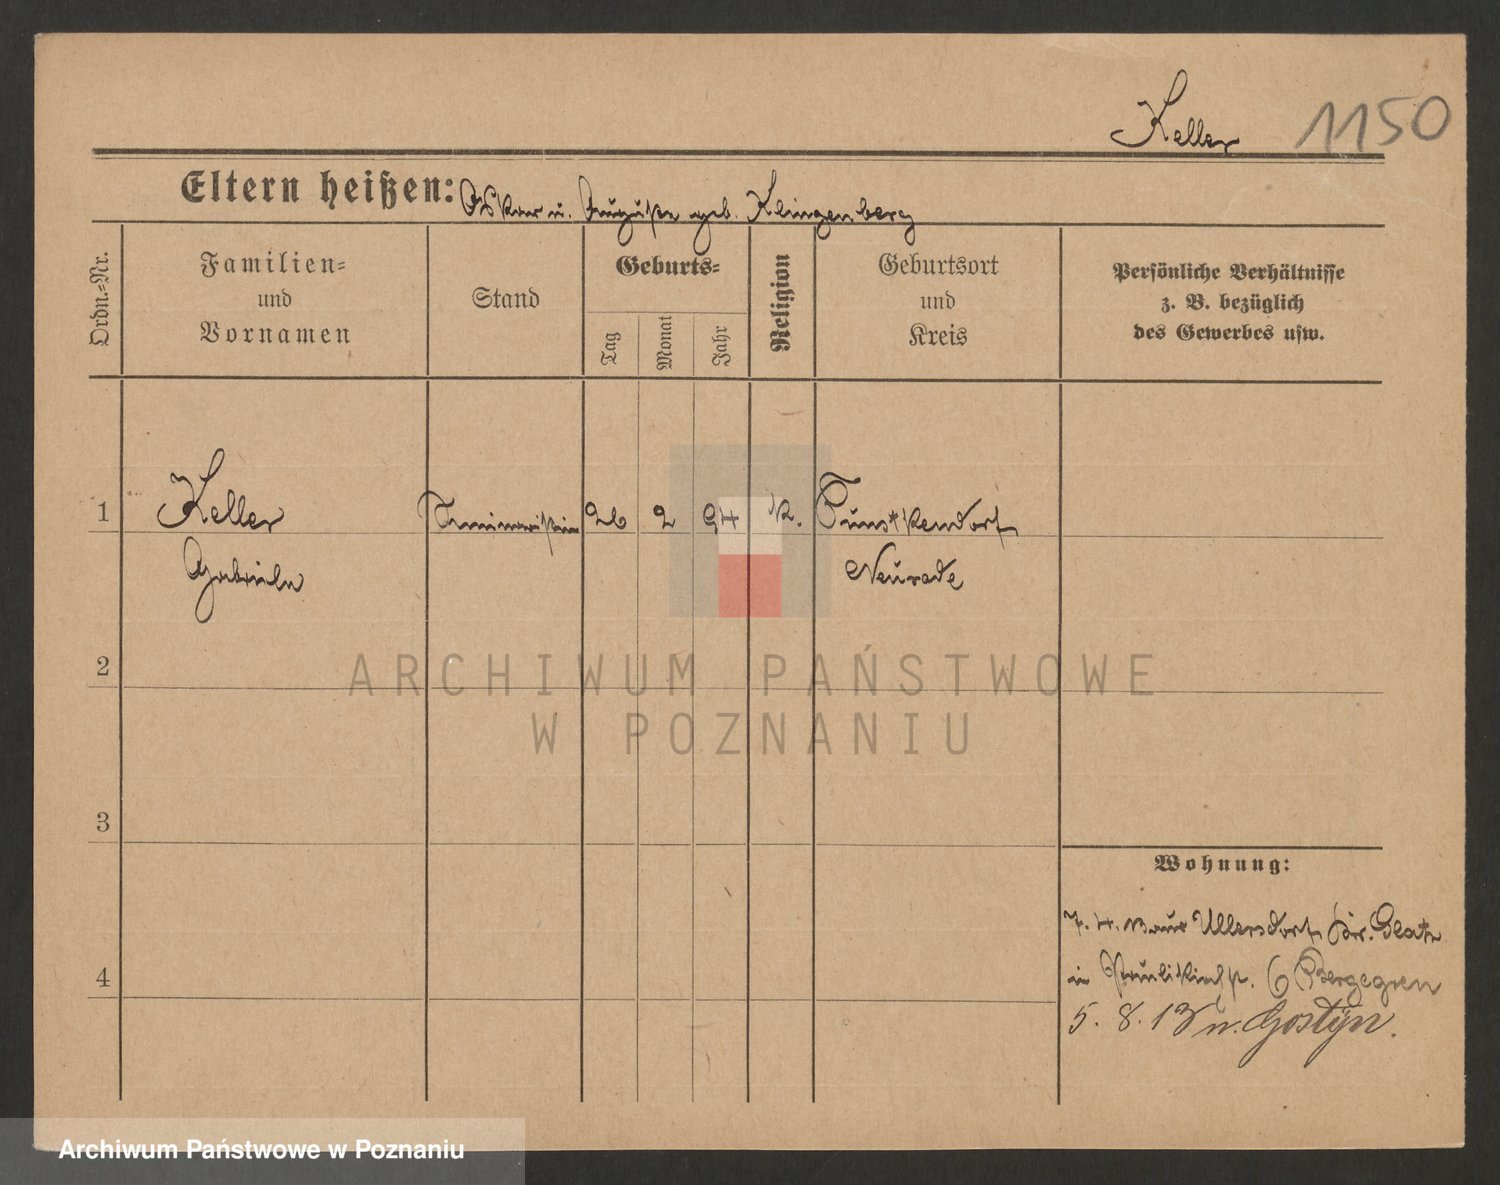 Keller 1150
Eltern heißen: Oskar u. Auguste geb. Klingenberg
Ordn.=Nr.
Familien=
und
Vornamen
Stand
Geburts=
Tag
Monat
Jahr
Religion
Geburtsort
und
Kreis
Persönliche Verhältnisse
z. B. bezüglich
des Gewerbes usw.
1 Keller Seminaristin 26 2 94 k. Kunzendorf
Gabriele Neurode
2
ARCHIWUM PAŃSTWOWE
W POZNANIU
3
Wohnung:
7. 4. 13 aus Ullersdorf Kr. Glatz
in Paulikirchstr. 6
5. 8. 13 n. Gostyn.
4
Archiwum Państwowe w Poznaniu